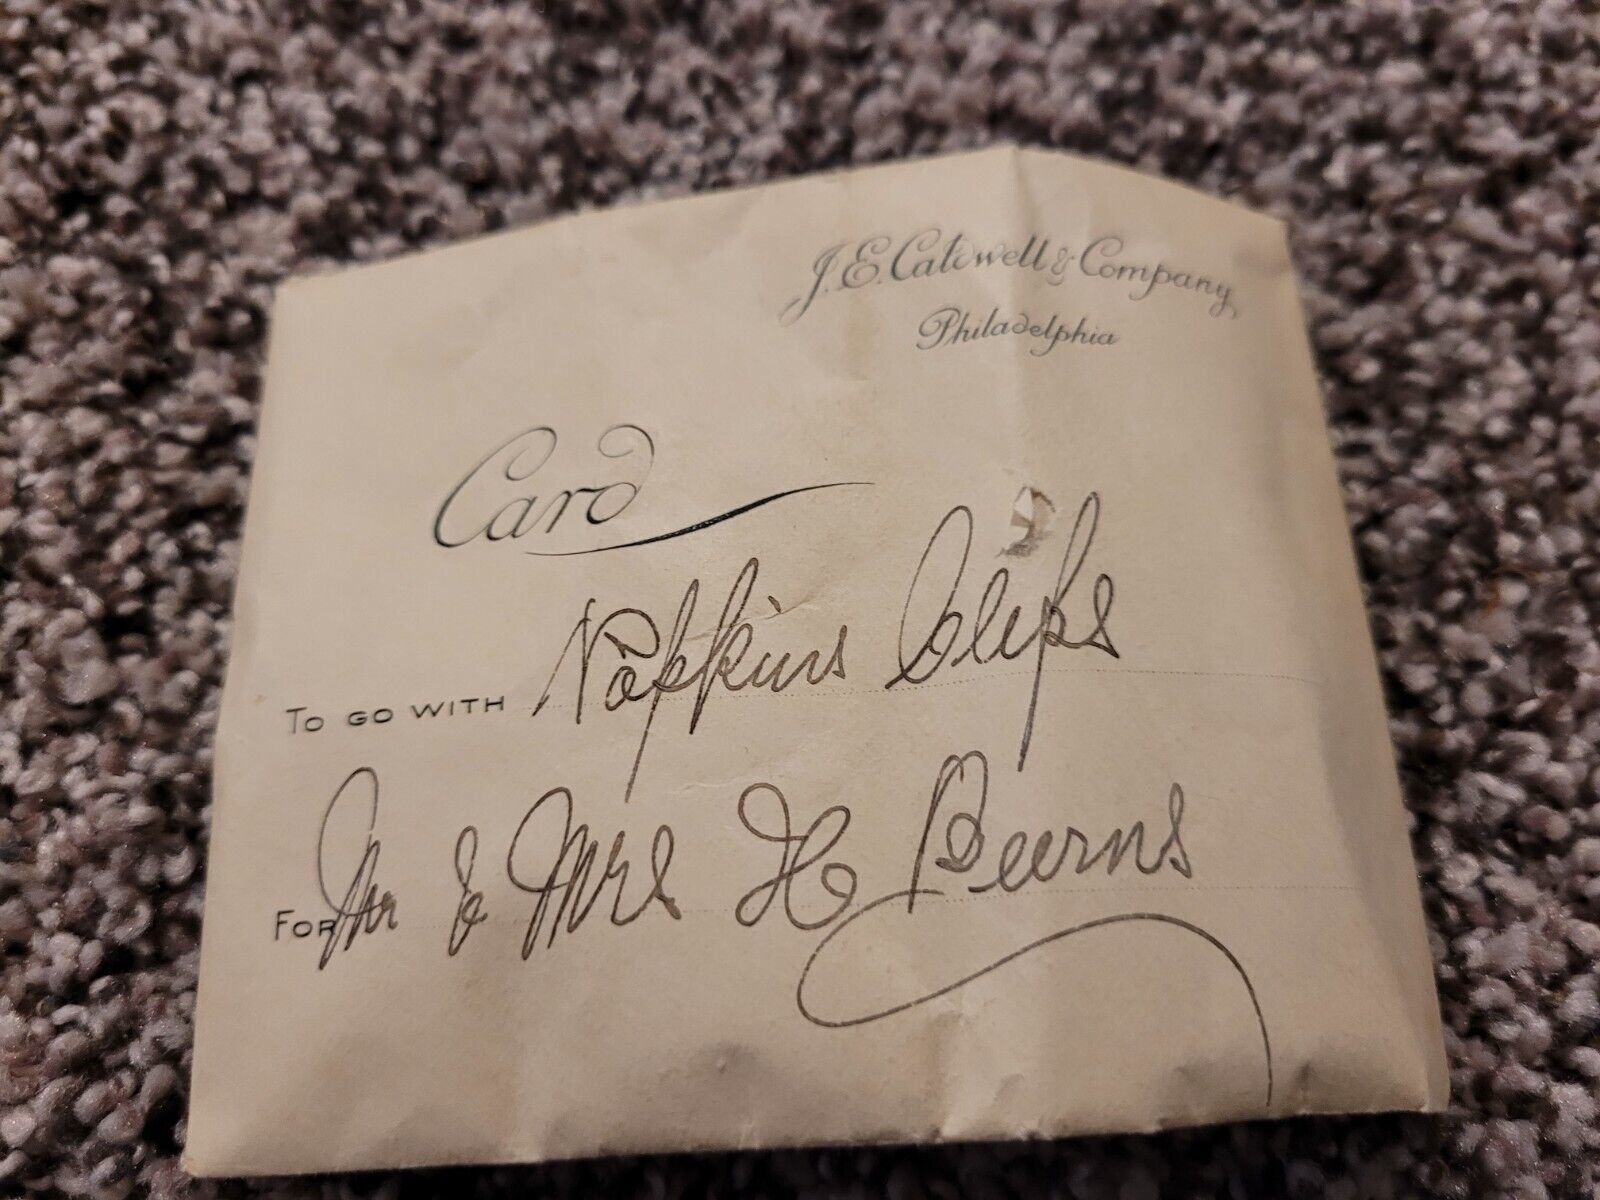 J. E. Caldwell & Company
Philadelphia
Card
To go with Napkins Clips
For Mr & Mrs H Burns